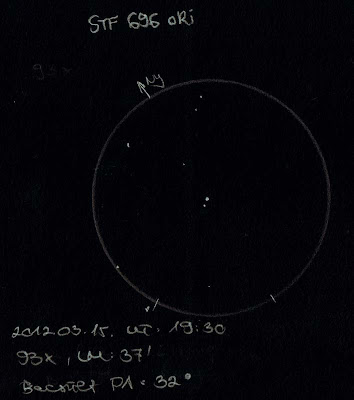 STF 696 ORi
93x
Ny
2012.03.15. UT: 19:30
93x, LM: 37'
Becsült PA: 32°